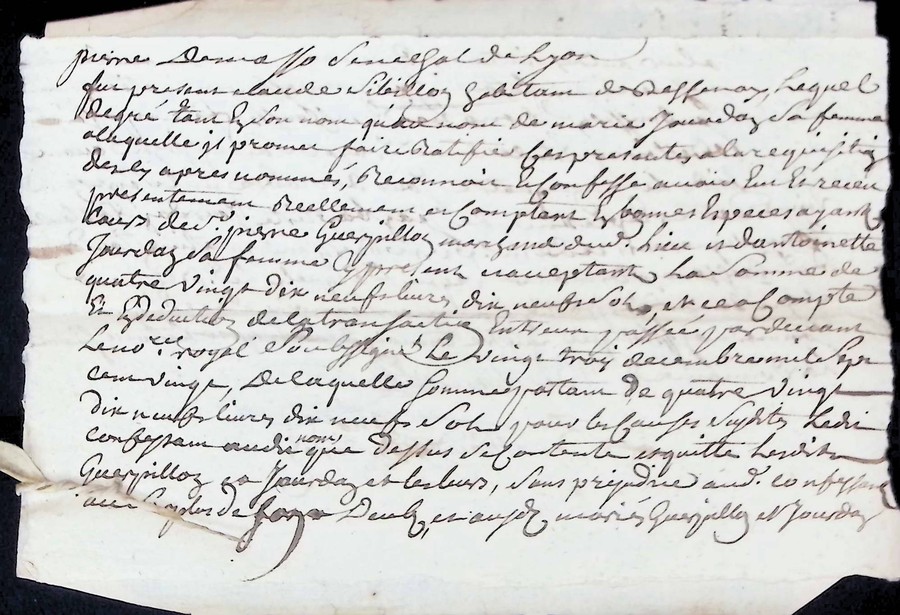 pierre Demasso Senechal de Lyon
fut present claude habitant de Bessenay, Lequel
degré tant En Son nom qu'au nom de marie Jourdan Sa femme
a laquelle jl promet faire Ratifier Ces presentes a la requisition
des cy apres nommés, Reconnoit Et Confesse avoir Eu Et receu
presentement Reellement et Comptant En bonnes Especes ayant
Cours de sr. pierre Guerpillon marchand dud. lieu et d'antoinette
Jourdan Sa femme Ypresent et acceptant La Somme de
quatre Vingt dix neuf livres dix neuf Sols, et ce a Compte
Et En deduction de la transaction Entreux passée pardevant
Le nore. royal Soubsigné Le Vingt trois decembre mil Sept
cent vingt, De laquelle Somme partant de quatre Vingt
dix neuf livres dix neuf Sols pour les Causes Susdites Ledit
confessant audit nom que dessus Se Contente et quitte Lesdits
Guerpillon et Jourdan et les leurs, Sans prejudice aud. confessant
du Surplus de Deub, et ausd. mariés Guerpillon et Jourdan